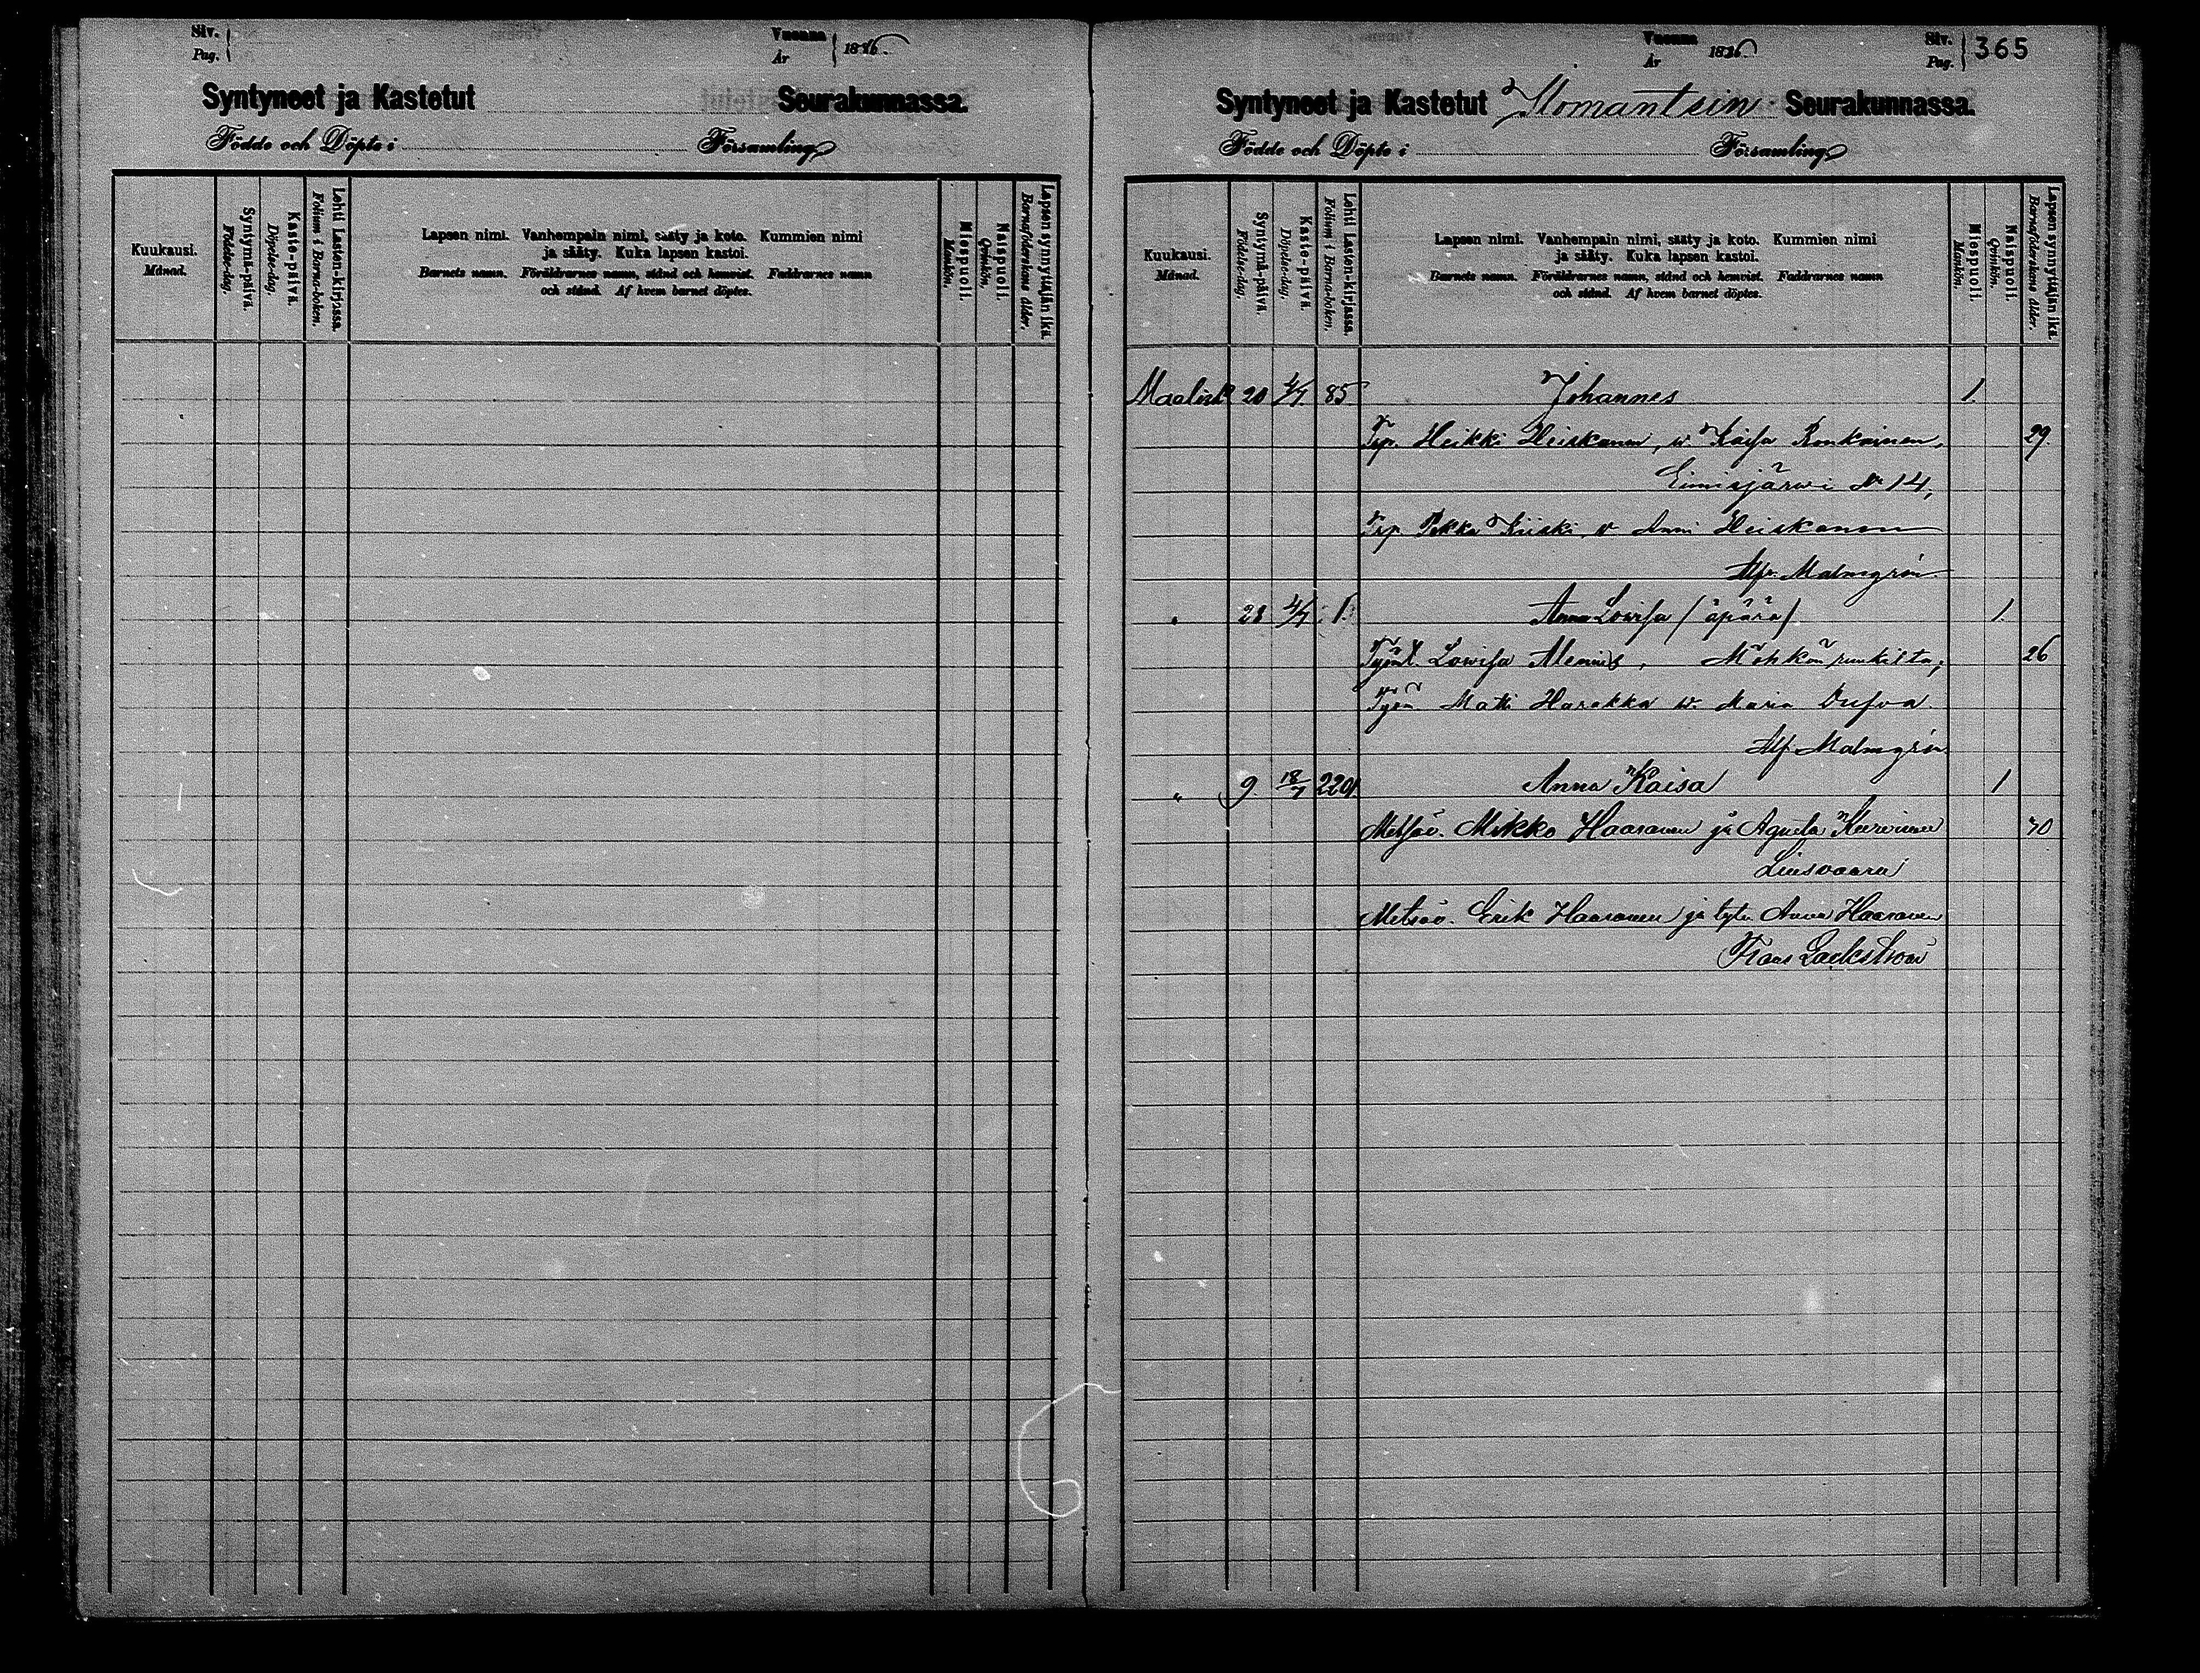 Siv.
Pag.
Vuonna
År
1886.
Syntyneet ja Kastetut Seurakunnassa.
Födde och Döpte i Församling
Kuukausi.
Månad.
Syntymä-päivä.
Födelse-dag.
Kaste-päivä.
Döpelse-dag.
Lehti Lasten-kirjassa.
Folium i Barna-boken.
Lapsen nimi. Vanhempain nimi, sääty ja koto. Kummien nimi
ja sääty. Kuka lapsen kastoi.
Barnets namn. Föräldrarnes namn, stånd och hemvist. Faddrarnes namn
och stånd. Af hvem barnet döptes.
Miespuoli.
Mankön.
Naispuoli.
Qvinkön.
Lapsen synnyttäjän ikä
Barnaföderskans ålder.
Vuonna
År
1886
Siv.
Pag.
365
Syntyneet ja Kastetut Ilomantsin Seurakunnassa.
Födde och Döpte i Församling
Kuukausi.
Månad.
Syntymä-päivä.
Födelse-dag.
Kaste-päivä.
Döpelse-dag.
Lehti Lasten-kirjassa.
Folium i Barna-boken.
Lapsen nimi. Vanhempain nimi, sääty ja koto. Kummien nimi
ja sääty. Kuka lapsen kastoi.
Barnets namn. Föräldrarnes namn, stånd och hemvist. Faddrarnes namn
och stånd. Af hvem barnet döptes.
Miespuoli.
Mankön.
Naispuoli.
Qvinkön.
Lapsen synnyttäjän ikä
Barnaföderskans ålder.
Maalisk 20 4/7 85 Johannes 1.
Tsp. Heikki Heiskanen, w. Kaisa Ronkainen, 29.
Eimisjärwi № 14,
Tsp. Pekka Kiiski w Anni Heiskanen
Alfr. Malmgrén
" 28 4/7 1. Anna Lowisa (äpärä) 1.
Lowisa Möhkön ruukilta, 26
Työm. Matti Harakka w. Maria Dufva
Alf Malmgrén
" 9 18/7 229 Anna Kaisa 1
Metsäv. Mikko Haaranen ja Agneta Keroinen 40
Liusvaara
Metsäv. Erik Haaranen ja tytär Anna Haaranen
Frans Lackström